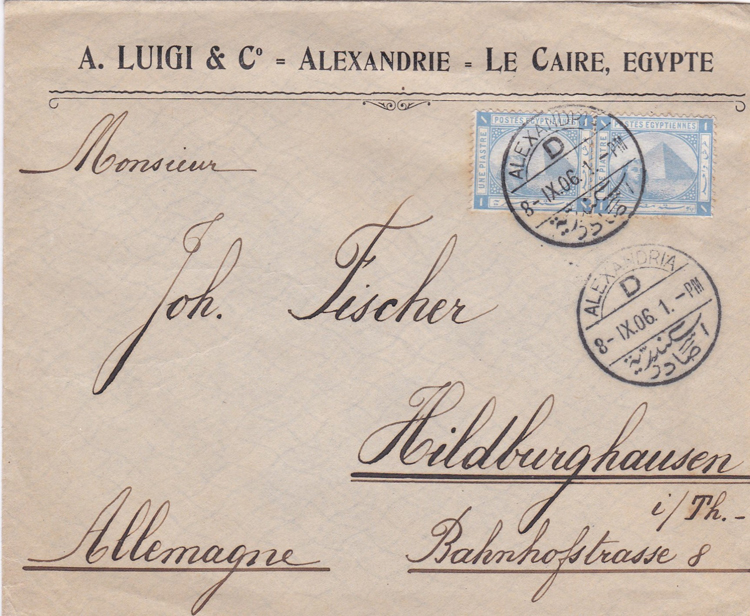 A. LUIGI & Co = ALEXANDRIE = LE CAIRE, EGYPTE
POSTES EGYPTIENNES
UNE PIASTRE
POSTES EGYPTIENNES
ALEXANDRIA
D
8-IX.06.1.-PM
Monsieur
Joh. Fischer
ALEXANDRIA
D
8-IX.06.1.-PM
اسكندرية
صادر
Hildburghausen
i/Th.-
Allemagne
Bahnhofstrasse 8